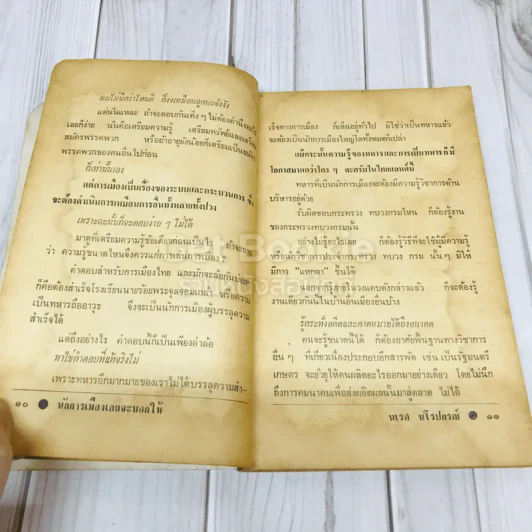 ผมไม่นึกว่าโดนดี
แค่นั้นแหละ ถ้าจะตอบกันเท่ง ๆ ไม่ต้องคำนึงอะไร
เลยก็ง่าย นั่นคือเตรียมความรู้ เตรียมทรัพย์และเตรียม
สมัครพรรคพวก หรือถ้าอายุยังน้อยก็เตรียมเป็นสมัคร
พรรคพวกของคนอื่นไปก่อน
ก็เท่านั้นเอง
แต่การเมืองเป็นเรื่องของระบบและกระบวนการ ซึ่ง
จะต้องดำเนินการเหนือการอื่นทั้งหลายทั้งปวง
เพราะฉะนั้นก็จะตอบง่าย ๆ ไม่ได้
มาดูที่เตรียมความรู้ข้อเดียวก่อนเป็นไร ถ้าจะถาม
ว่า ความรู้ขนาดไหนจึงควรแก่การเล่นการเมือง ?
คำตอบสำหรับการเมืองไทย และมักจะล้อกันบ่อย
ก็คือต้องสำเร็จโรงเรียนนายร้อยพระจุลจอมเกล้า หรือความ
เป็นทหารถืออาวุธ จึงจะเป็นนักการเมืองผู้บรรลุความ
สำเร็จได้
แต่ถึงอย่างไร คำตอบนี้ก็เป็นเพียงคำล้อ
หาใช่คำตอบที่แท้จริงไม่
เพราะทหารอีกมากมายของเราไม่ได้บรรลุความสำ-
๑๐ นักการเมืองเอกจะบอกให้
เร็จทางการเมือง ก็เห็นอยู่ทั่วไป มิใช่ว่าเป็นทหารแล้ว
จะต้องเป็นนักการเมืองใหญ่โตทั้งหมดก็เปล่า
แม้กระนั้นความรู้ของทหารและการเป็นทหารก็มี
โอกาสมากกว่าใคร ๆ ละครับในไทยแลนด์นี้
ทหารที่เป็นนักการเมืองจะต้องมีความรู้วิชาการด้าน
บริหารอยู่ด้วย
รับผิดชอบกระทรวง ทบวงกรมไหน ก็ต้องรู้งาน
ของกระทรวงทบวงกรมนั้น
อย่างไม่รู้อะไรเลย ก็ต้องรู้วิธีที่จะใช้ผู้มีความรู้
หรือข้าราชการประจำกระทรวง ทบวง กรม นั้น ๆ มิให้
มีการ "แหกตา" ขึ้นได้
ก็ต้องรู้
งานเดียวกันนั้นในบ้านอื่นเมืองอื่นบ้าง
รู้กระทั่งอดีตและคาดหมายได้ถึงอนาคต
คนจะรู้ขนาดนี้ได้ ก็ต้องอาศัยพื้นฐานทางวิชาการ
อื่น ๆ ที่เกี่ยวเนื่องประกอบสารพัด เช่น เป็นรัฐมนตรี
เกษตร จะยั่วยุให้คนผลิตอะไรออกมาอย่างเดียว โดยไม่นึก
ถึงการคมนาคมเพื่อส่งผลิตผลนั้นมาสู่ตลาด ไม่ได้
นเรศ นโรปกรณ์ ๑๑